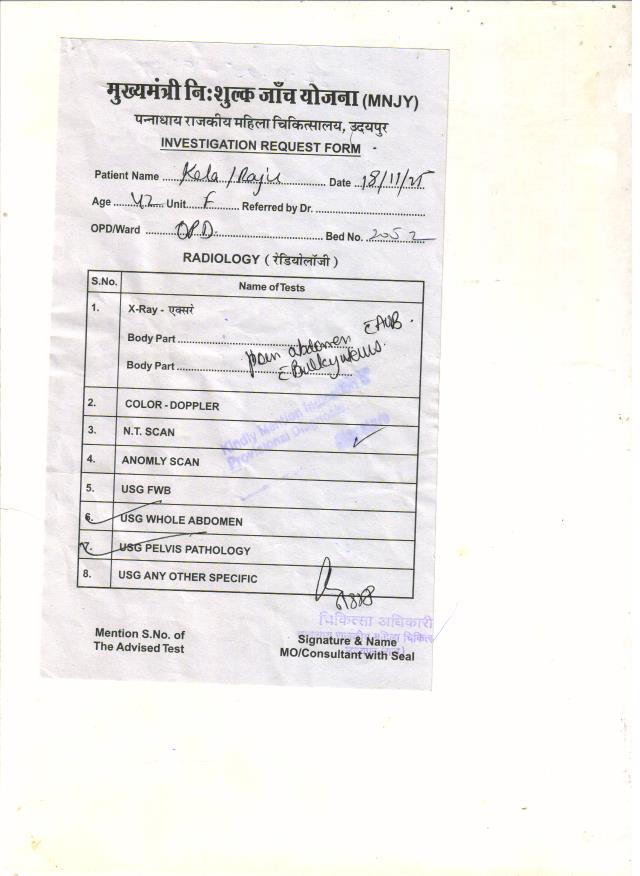 मुख्यमंत्री निःशुल्क जाँच योजना (MNJY)
पन्नाधाय राजकीय महिला चिकित्सालय, उदयपुर
INVESTIGATION REQUEST FORM
Patient Name Kela / Raju Date 18/11/25
Age 42 Unit F Referred by Dr.
OPD/Ward OPD. Bed No. 2052
RADIOLOGY ( रेडियोलॉजी )
S.No. Name of Tests
1. X-Ray - एक्सरे
Body Part pain abdomen c AUB.
Body Part c Bulky uterus.
2. COLOR - DOPPLER
Kindly Mention
Provisional
3. N.T. SCAN ✓
4. ANOMLY SCAN
5. USG FWB
6. USG WHOLE ABDOMEN
7. USG PELVIS PATHOLOGY
8. USG ANY OTHER SPECIFIC
चिकित्सा अधिकारी
Mention S.No. of
The Advised Test
Signature & Name
MO/Consultant with Seal